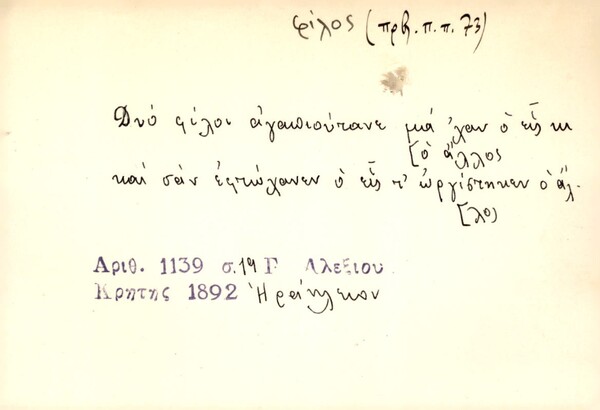 φίλος (πρβ. π.π. 73)
Δυό φίλοι ἀγαπιούτανε μιά ἦλαν ὁ εἷς κι
[ὁ ἄλλος
καί σάν ἐφτώχανεν ὁ εἷς τ' ὠργίστηκεν ὁ ἄλ-
[λος
Αριθ. 1139 σ. 19 Γ Αλεξιου
Κρητης 1892 Ἡράκλειον